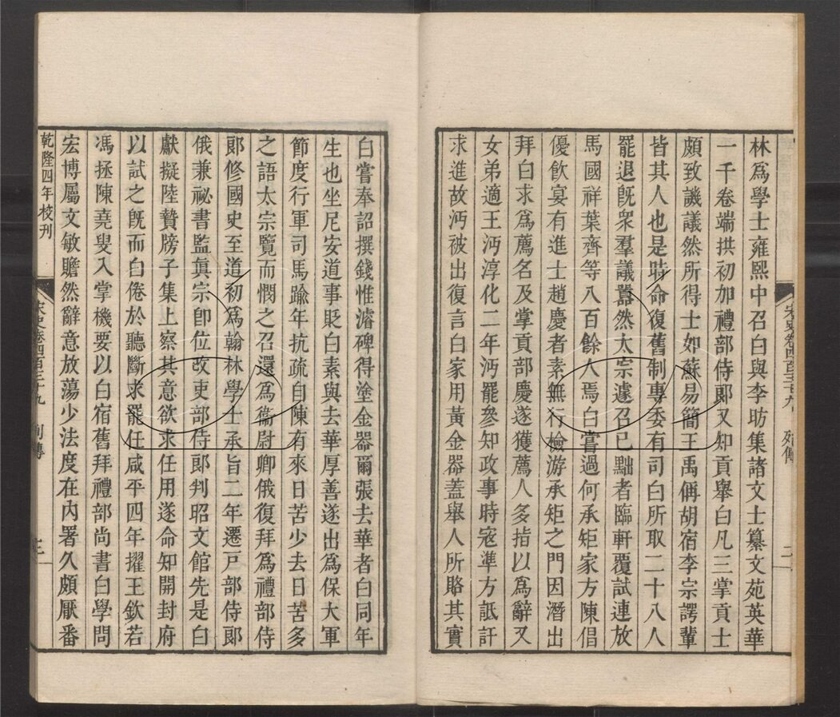 林爲學士雍熙中召白與李昉集諸文士纂文苑英華
一千卷端拱初加禮部侍郎又知貢舉白凡三掌貢士
頗致譏議然所得士如蘇易簡王禹偁胡宿李宗諤輩
皆其人也是時命復舊制專委有司白所取二十八人
罷退旣衆羣議囂然太宗遽召已黜者臨軒覆試連放
馬國祥葉齊等八百餘人焉白嘗過何承矩家方陳倡
優飮宴有進士趙慶者素無行檢游承矩之門因潛出
拜白求爲薦名及掌貢部慶遂獲薦人多指以爲辭又
女弟適王沔淳化二年沔罷參知政事時寇準方詆訐
求進故沔被出復言白家用黃金器蓋舉人所賂其實
宋史卷四百三十九 列傳 二
白嘗奉詔撰錢惟濬碑得塗金器爾張去華者白同年
生也坐尼安道事貶白素與去華厚善遂出爲保大軍
節度行軍司馬踰年抗疏自陳有來日苦少去日苦多
之語太宗覽而憫之召還爲衞尉卿俄復拜爲禮部侍
郞修國史至道初爲翰林學士承旨二年遷戸部侍郞
俄兼祕書監眞宗卽位改吏部侍郞判昭文館先是白
獻擬陸贄牓子集上察其意欲求任用遂命知開封府
以試之旣而白倦於聽斷求罷任咸平四年擢王欽若
馮拯陳堯叟入掌機要以白宿舊拜禮部尚書白學問
宏博屬文敏贍然辭意放蕩少法度在內署久頗厭番
乾隆四年校刊
宋史卷四百三十九 列傳 三